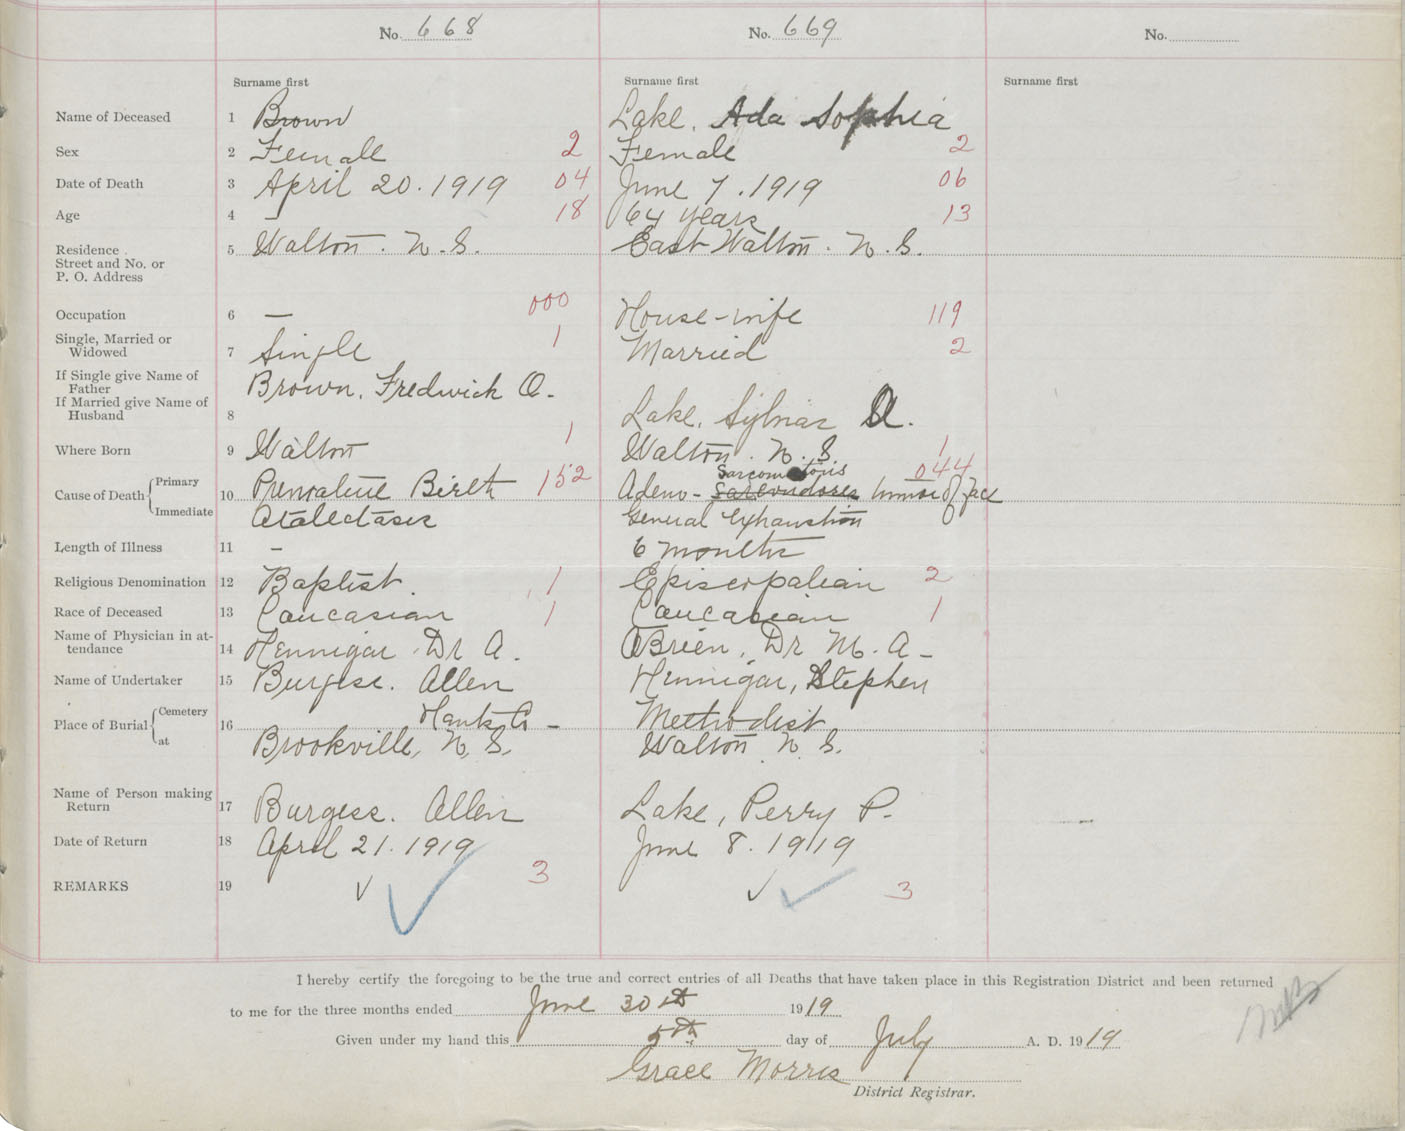 No. 668 No. 669 No.
Surname first Surname first Surname first
Name of Deceased 1 Brown Lake, Ada Sophia
Sex 2 Female 2 Female 2
Date of Death 3 April 20. 1919 04 June 7. 1919 06
Age 4 – 18 64 years 13
Residence 5 Walton. N.S. East Walton. N.S.
Street and No. or
P. O. Address
Occupation 6 – 000 House-wife 119
Single, Married or
Widowed 7 Single 1 Married 2
If Single give Name of
Father Brown, Fredwick A.
If Married give Name of
Husband 8 Lake, A.
Where Born 9 Walton 1 Walton. N.S. 1
Primary
Cause of Death 10 Premature Birth 152 Adeno- Sarcomatous tumor of face 044
Immediate Atalectasis General Exhaustion
Length of Illness 11 – 6 months
Religious Denomination 12 Baptist. 1 Episcopalian 2
Race of Deceased 13 Caucasian 1 Caucasian 1
Name of Physician in at-
tendance 14 Hennigar. Dr A. O'Brien, Dr M. A–
Name of Undertaker 15 Burgess. Allen Hennigar, Stephen
Place of Burial Cemetery 16 Hants Co– Methodist
at Brookville, N.S. Walton N.S.
Name of Person making
Return 17 Burgess. Allen Lake, Perry P.
Date of Return 18 April 21. 1919 June 8. 1919
REMARKS 19 ✓ 3 ✓ 3
I hereby certify the foregoing to be the true and correct entries of all Deaths that have taken place in this Registration District and been returned
to me for the three months ended June 30th 1919
Given under my hand this 5th day of July A. D. 1919
Grace Morris
District Registrar.